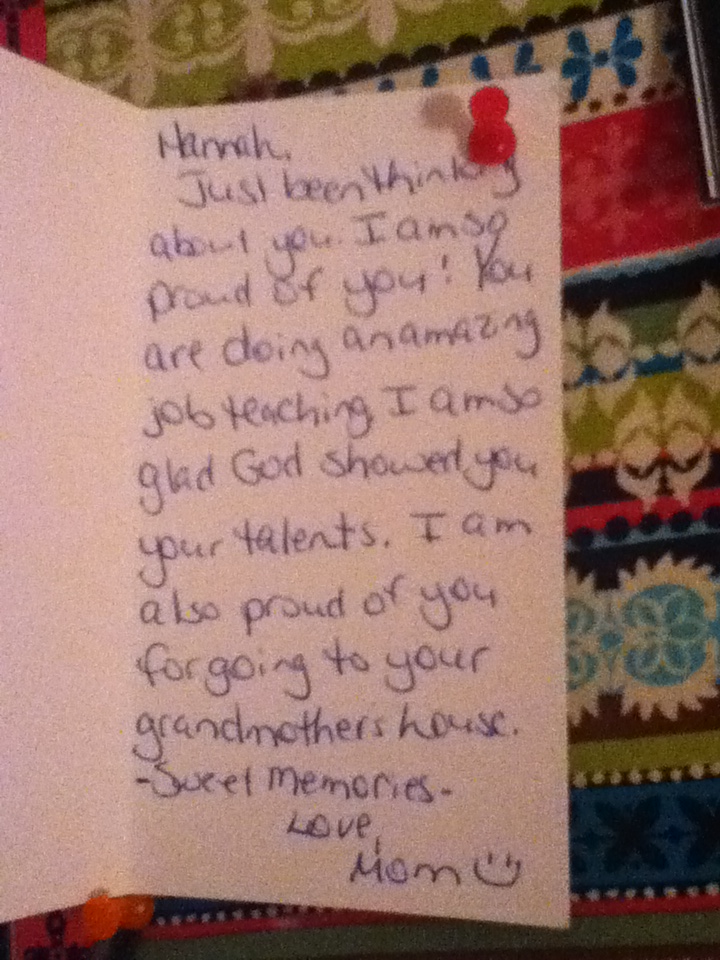 Hannah,
Just been thinking
about you. I am so
proud of you! You
are doing an amazing
job teaching I am so
glad God showed you
your talents. I am
also proud of you
for going to your
grandmothers house.
-Sweet memories-
Love,
Mom